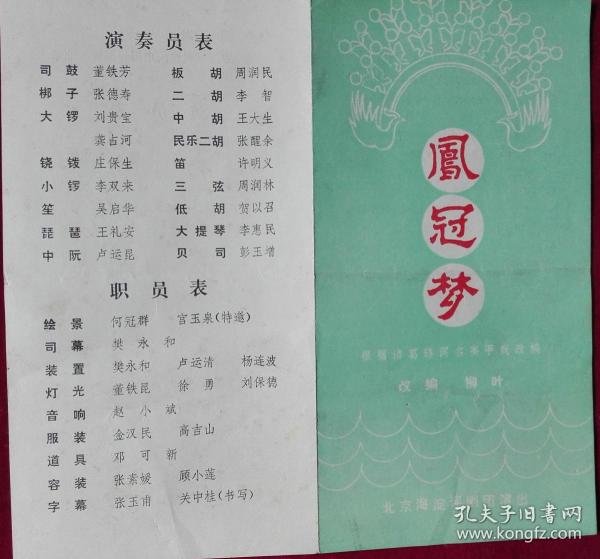 演奏员表
司鼓 董铁芳 板胡 周润民
梆子 张德寿 二胡 李智
大锣 刘贵宝 中胡 王大生
龚占河 民乐二胡 张醒余
铙钹 庄保生 笛 许明义
小锣 李双来 三弦 周润林
笙 吴启华 低胡 贺以召
琵琶 王礼安 大提琴 李惠民
中阮 卢运昆 贝司 彭玉增
职员表
绘景 何冠群 宫玉泉(特邀)
司幕 樊永和
装置 樊永和 卢运清 杨连波
灯光 董铁昆 徐勇 刘保德
音响 赵小斌
服装 金汉民 高吉山
道具 邓可新
容装 张素媛 顾小莲
字幕 张玉甫 关中桂(书写)
鳳冠梦
根据诸葛辂同名
改编
改编 柳叶
北京海淀评剧团演出
孔夫子旧书网
www.kongfz.com